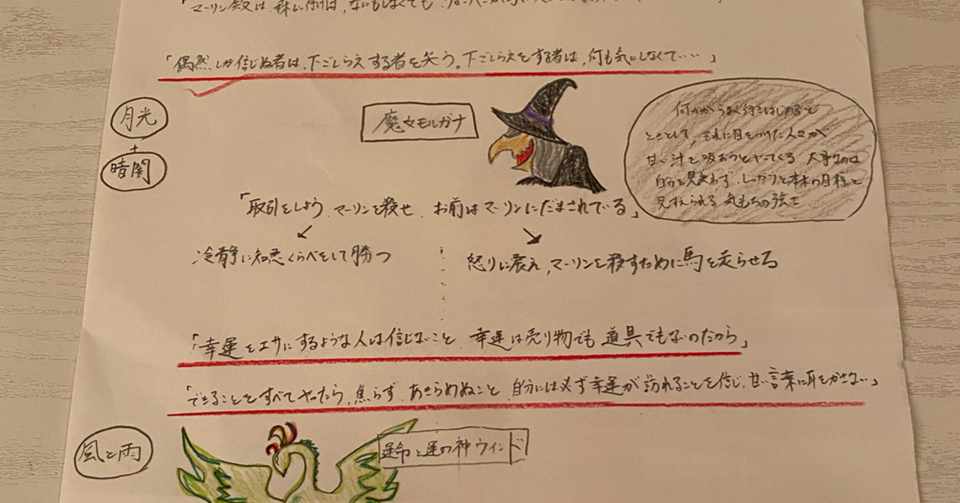 「マーリン
「偶然しか信じぬ者は、下ごしらえする者を笑う。下ごしらえをする者は、何も気にしなくて‥‥」
月光
+
暗闇
魔女モルガナ
何かがうまく行きはじめると
ときとして、それに目をつけた人々が
甘い汁を吸おうとやってくる 大事なのは
自分を見失わず、しっかりと本来の目標を
見すえられる気もちの強さ
「取引をしよう マーリンを殺せ、お前はマーリンにだまされている」
冷静に知恵くらべをして勝つ
怒りに震え、マーリンを殺すために馬を走らせる
「幸運をエサにするような人は信じないこと 幸運は売り物でも道具でもないのだから」
「できることをすべてやったら、焦らず、あきらめぬこと 自分には必ず幸運が訪れることを信じ、甘い言葉に耳をかさない」
風と雨
運命と運の神ウィンド